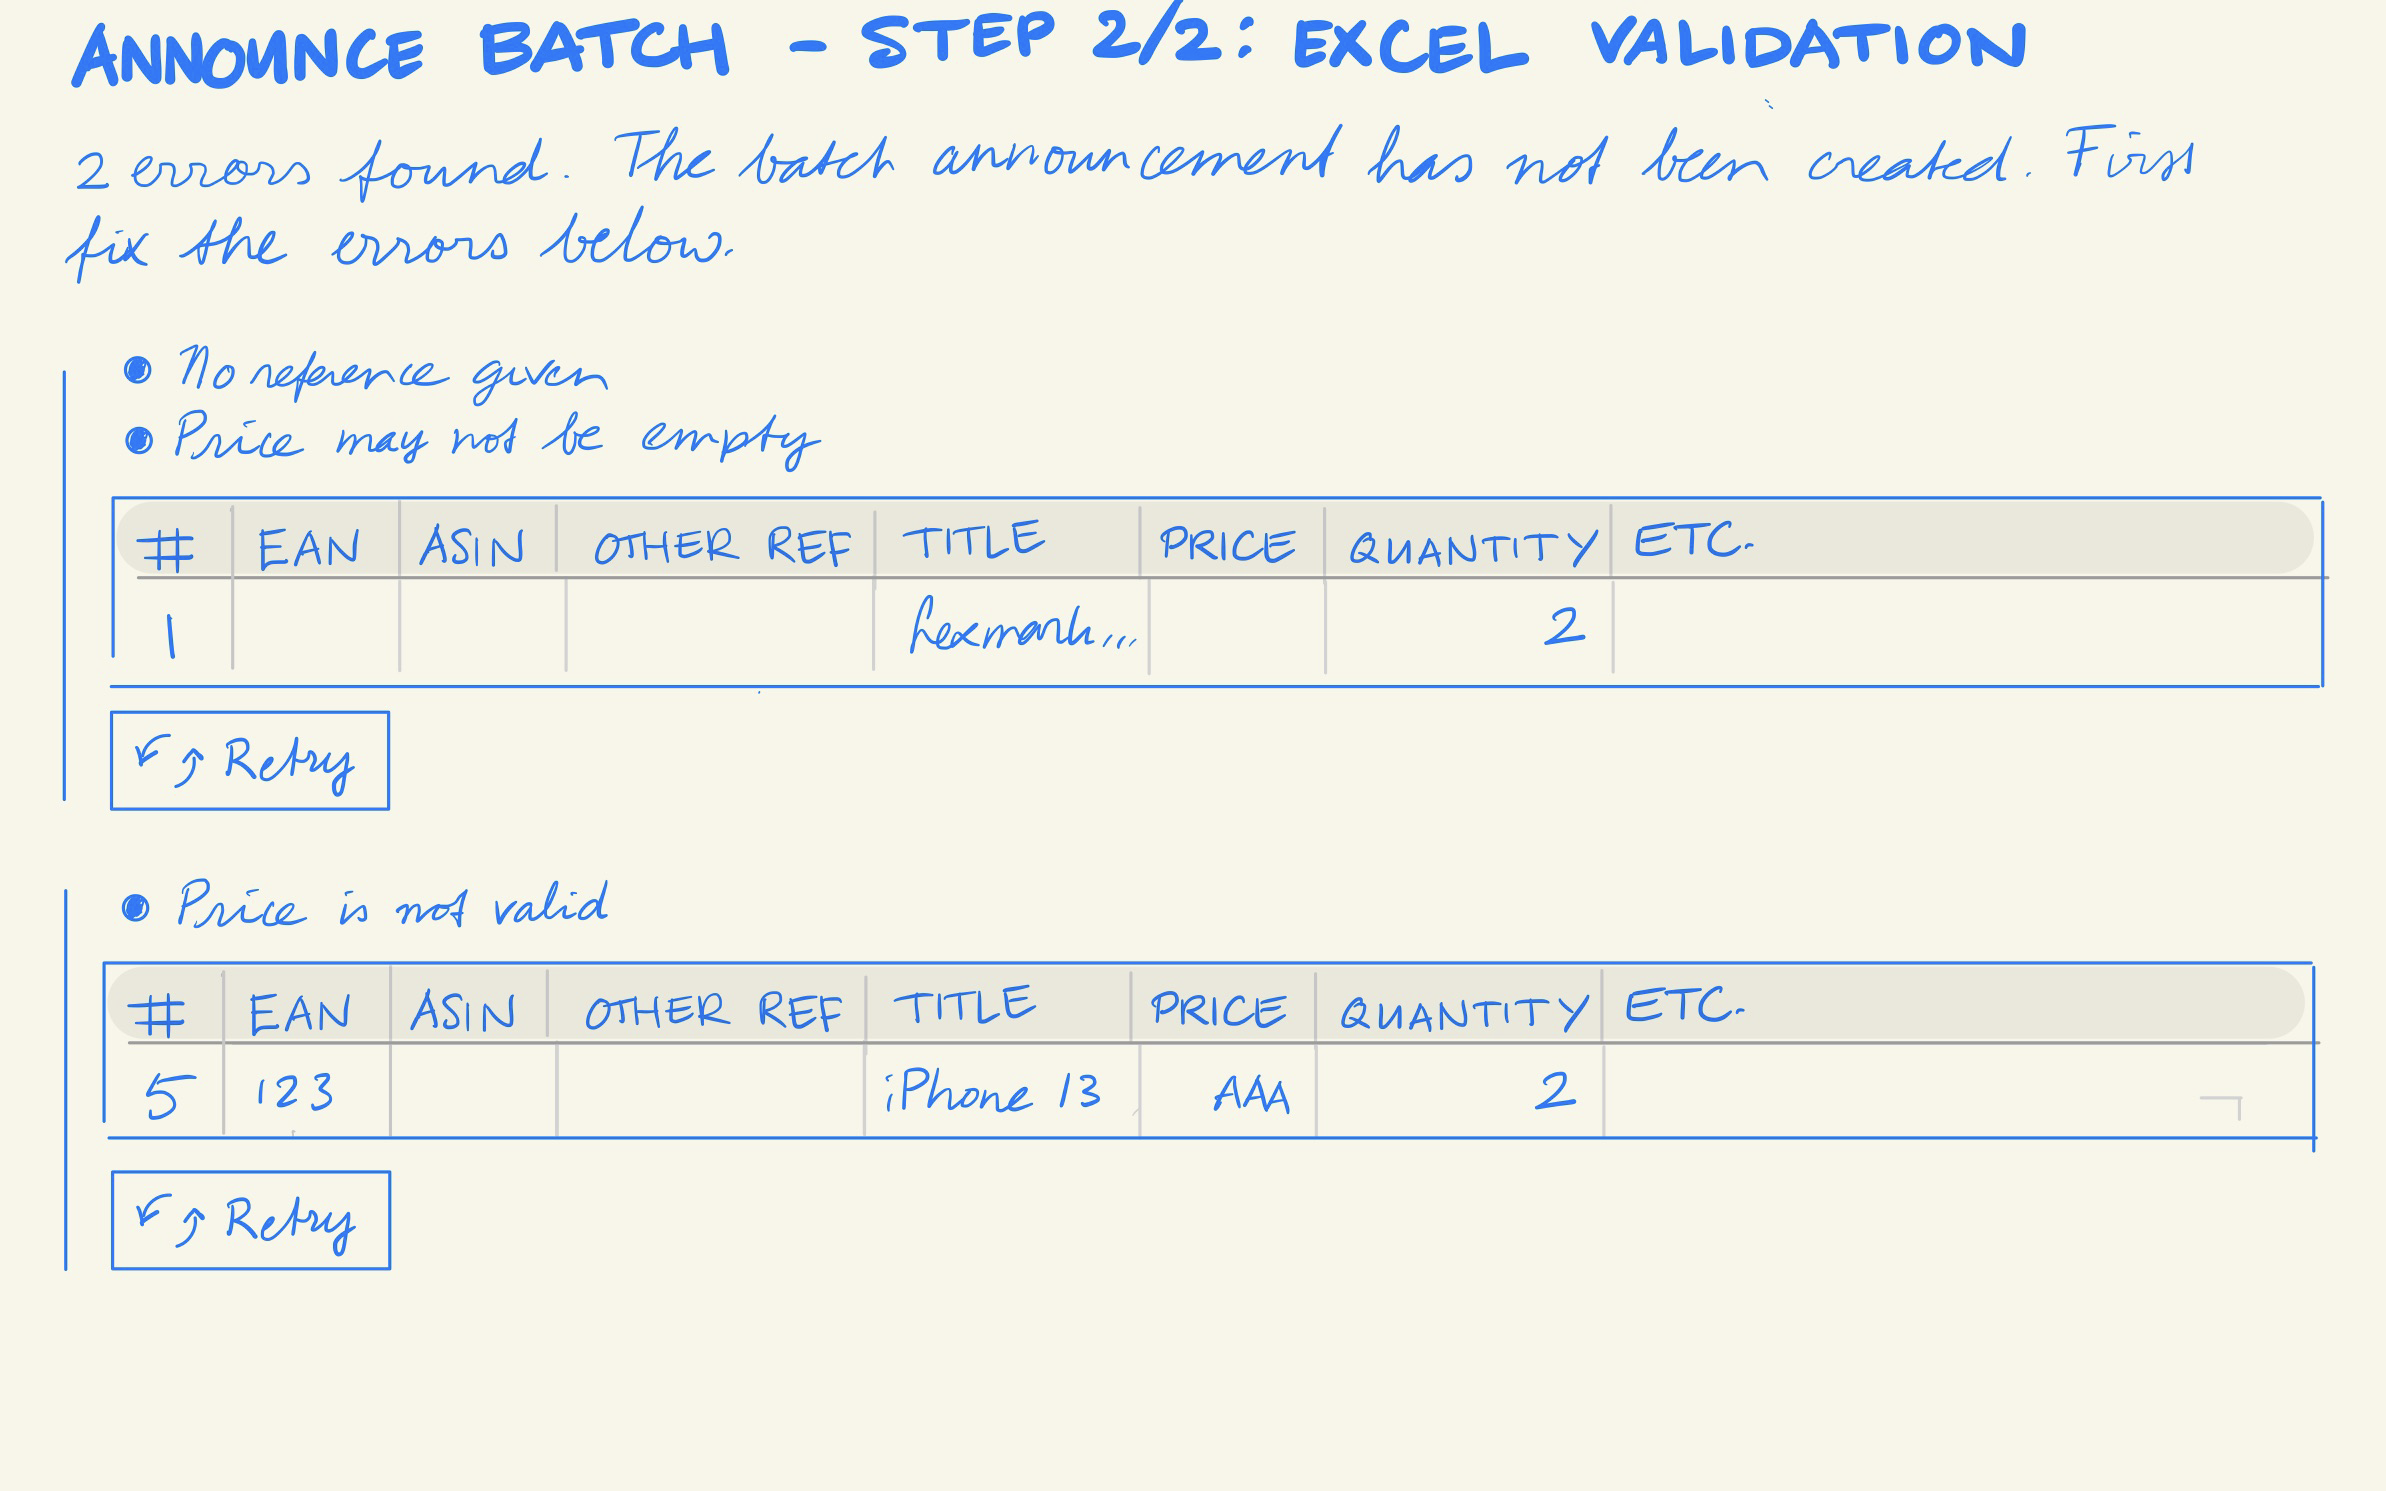 ANNOUNCE BATCH - STEP 2/2: EXCEL VALIDATION
2 errors found. The batch announcement has not been created. First
fix the errors below.
No reference given
Price may not be empty
# EAN ASIN OTHER REF TITLE PRICE QUANTITY ETC.
1 Lexmark... 2
Retry
Price is not valid
# EAN ASIN OTHER REF TITLE PRICE QUANTITY ETC.
5 123 iPhone 13 AAA 2
Retry